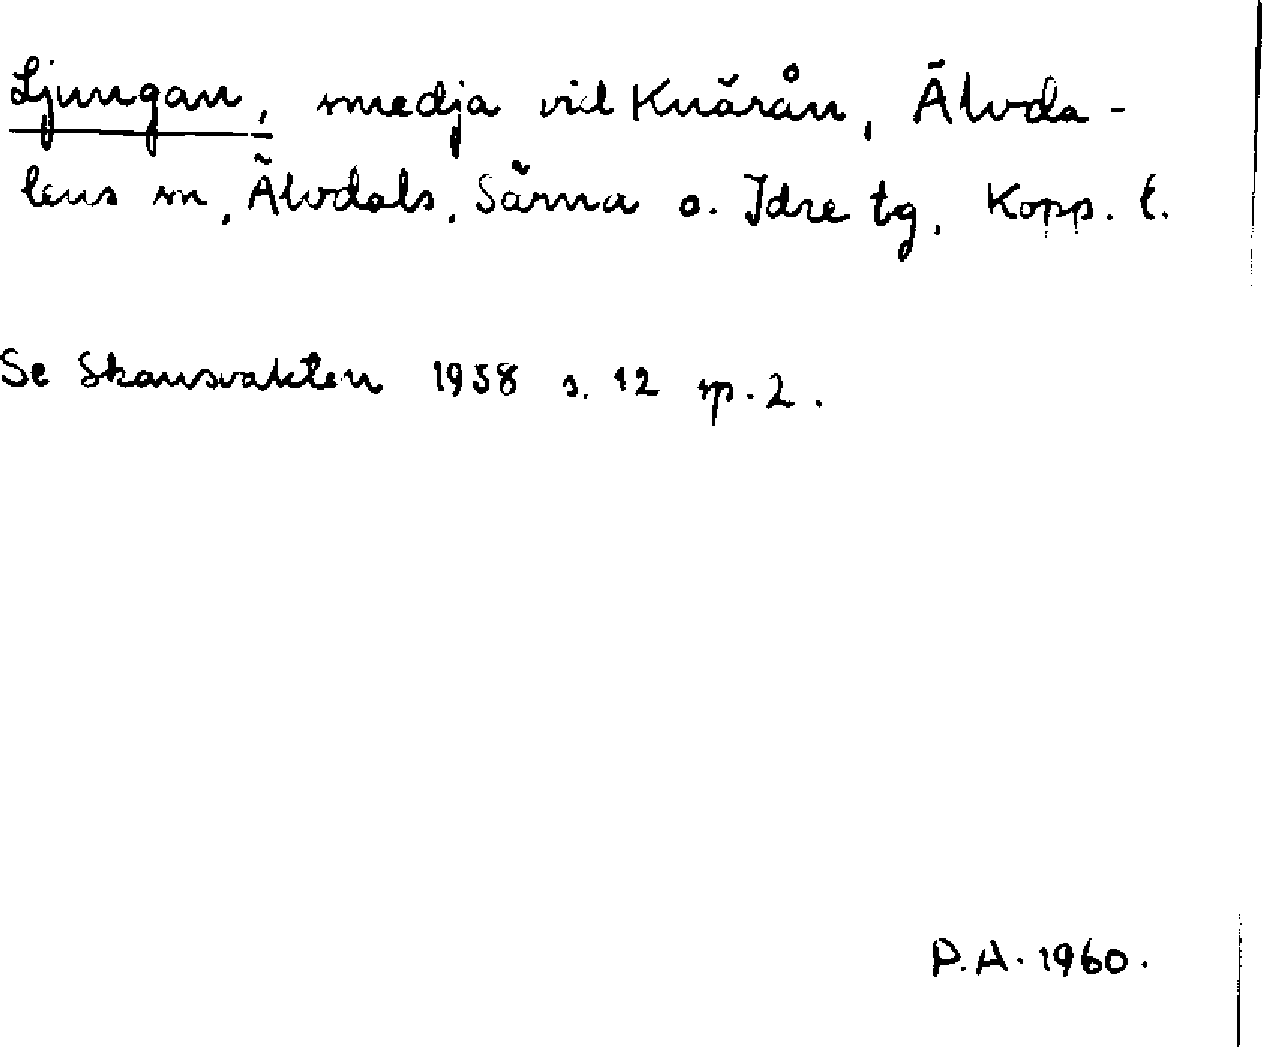 Ljungan, smedja vid Knärån, Älvda-
lens sn, Älvdals, Särna o. Idre tg, Kopp. l.
Se Skansvakten 1958 s. 12 sp. 2.
P.A. 1960.